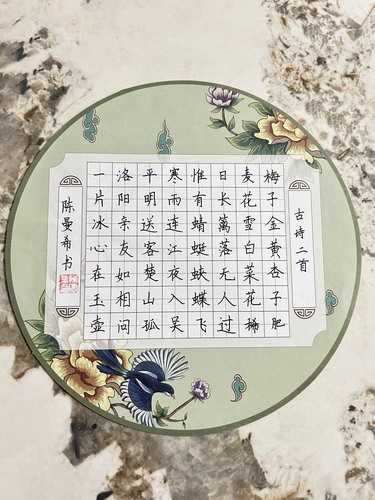 古诗二首
梅子金黄杏子肥
麦花雪白菜花稀
日长篱落无人过
惟有蜻蜓蛱蝶飞
寒雨连江夜入吴
平明送客楚山孤
洛阳亲友如相问
一片冰心在玉壶
陈曼希书